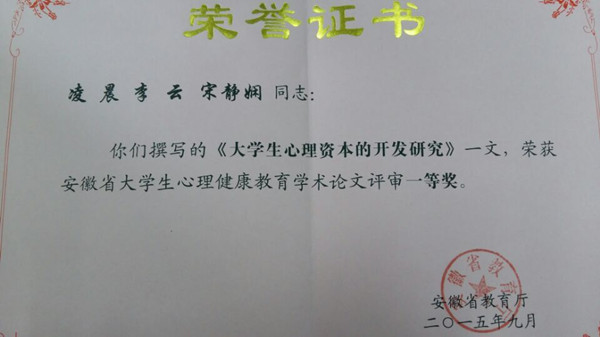 荣誉证书
凌晨 李云 宋静娴 同志：
你们撰写的《大学生心理资本的开发研究》一文，荣获
安徽省大学生心理健康教育学术论文评审一等奖。
徽省教育
安徽省教育厅
二〇一五年九月